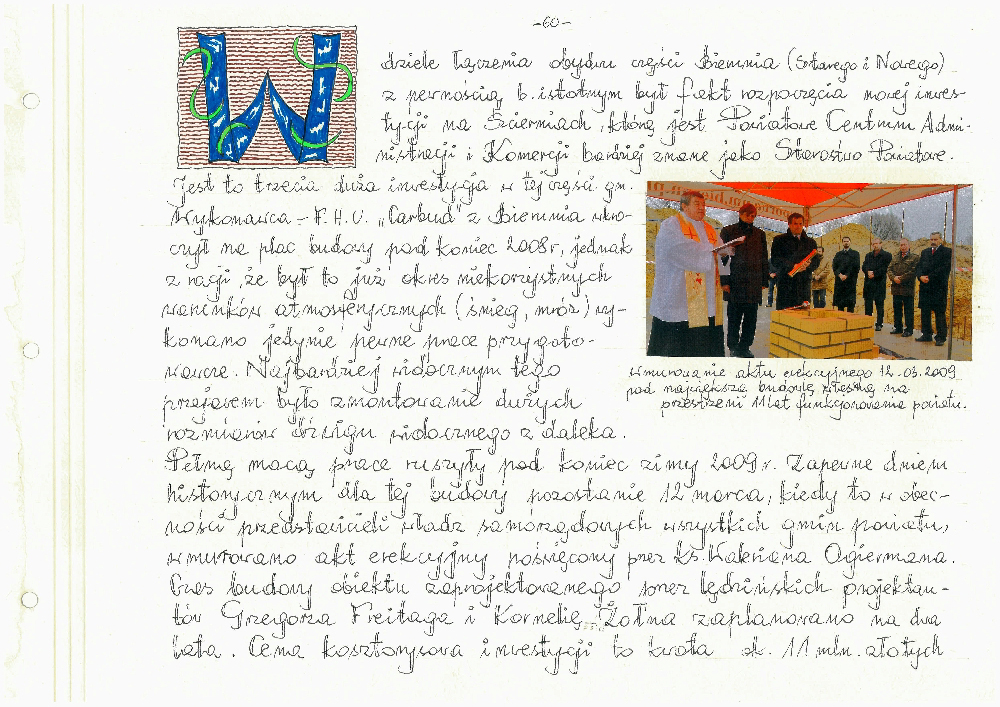 -60-
W dziele łączenia obydwu części Bierunia (Starego i Nowego)
z pewnością b. istotnym był fakt rozpoczęcia nowej inwes-
tycji na Ścierniach, którą jest Powiatowe Centrum Admi-
nistracji i Komercji bardziej znane jako Starostwo Powiatowe.
Jest to trzecia duża inwestycja w tej części gm.
Wykonawca - F.H.U. „Carbud" z Bierunia wkro-
czył na plac budowy pod koniec 2008r, jednak
z racji, że był to już okres niekorzystnych
warunków atmosferycznych (śnieg, mróz) wy-
konano jedynie pewne prace przygoto-
wawcze. Najbardziej widocznym tego
przejawem było zmontowanie dużych
rozmiarów dźwigu widocznego z daleka.
wmurowanie aktu erekcyjnego 12.03.2009
pod największą budowlę na
przestrzeni 11 lat funkcjonowania powiatu.
Pełną mocą prace ruszyły pod koniec zimy 2009r. Zapewne dniem
historycznym dla tej budowy pozostanie 12 marca, kiedy to w obec-
ności przedstawicieli władz samorządowych wszystkich gmin powiatu,
wmurowano akt erekcyjny poświęcony przez ks. Waleriana Ogiermana.
Czas budowy obiektu zaprojektowanego przez lędzińskich projektan-
tów Grzegorza Freitaga i Kornelię Żołna zaplanowano na dwa
lata. Cena kosztorysowa inwestycji to kwota ok. 11 mln. złotych